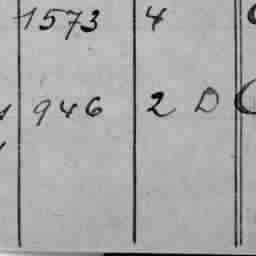 1573 4
946 2 D